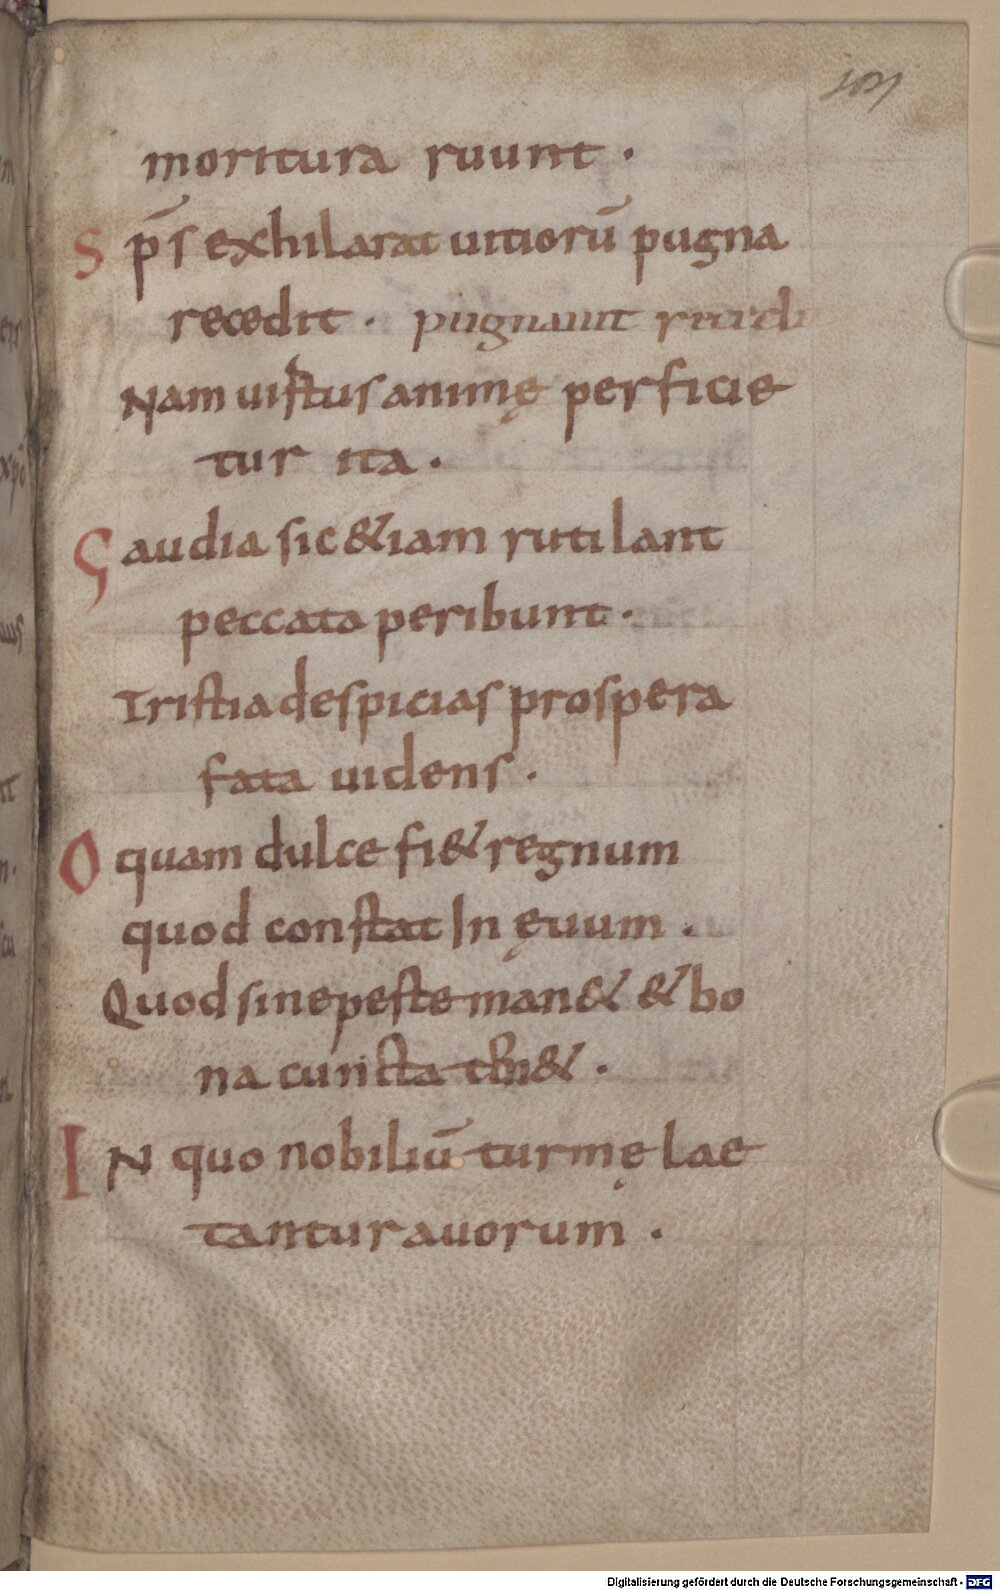 101
moritura ruunt .
S p̄s exhilarat uitiorū pugna
recedit . pugnaunt recedi
Nam uirtus animę perficie
tur ita .
Gaudia sic &iam rutilant
peccata peribunt .
Tristia despicias prospera
fata uidens .
O quam dulce fi& regnum
quod constat In ęuum .
Quod sine peste man& & bo
na cuncta
IN quo nobiliū turmę lae
tantur auorum .
Digitalisierung gefördert durch die Deutsche Forschungsgemeinschaft - DFG